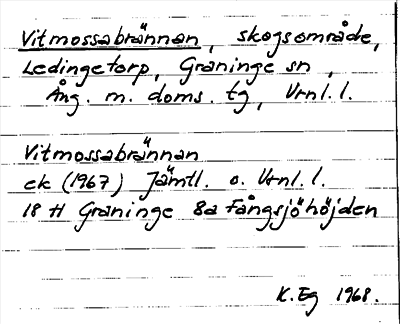 Vitmossabrännan, skogsområde,
Ledingetorp, Graninge sn,
Ång. m. doms. tg, Vrnl. l.
Vitmossabrännan
ek (1967) Jämtl. o. Vrnl. l.
18 H Graninge 8a Fångsjöhöjden
K. Eg 1968.